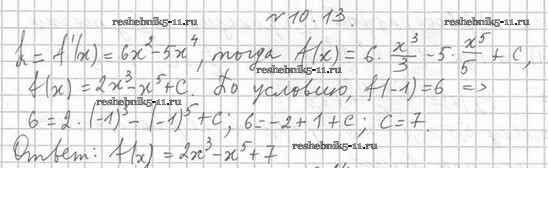 reshebnik5-11.ru
№10.13. reshebnik5-11.ru
k = f'(x) = 6x² - 5x⁴, тогда f(x) = 6 · x³/3 - 5 · x⁵/5 + C,
reshebnik5-11.ru
f(x) = 2x³ - x⁵ + C. По условию, f(-1) = 6 =>
reshebnik5-11.ru
6 = 2 · (-1)³ - (-1)⁵ + C; 6 = -2 + 1 + C; C = 7.
reshebnik5-11.ru
Ответ: f(x) = 2x³ - x⁵ + 7
reshebnik5-11.ru